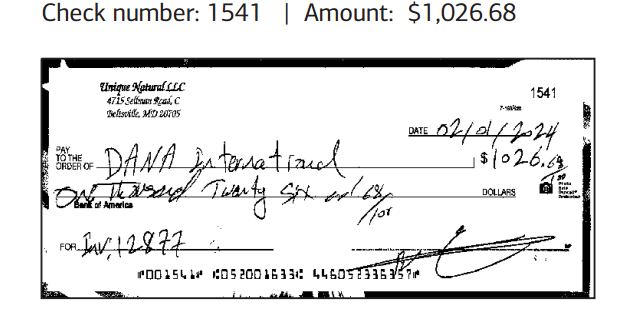 Check number: 1541 | Amount: $1,026.68
Unique Natural LLC
4715 Sellman Road, C
Beltsville, MD 20705
1541
DATE 02/01/2024
PAY TO THE ORDER OF DANA International $1026.68/100
One Thousand Twenty Six and 68/100 DOLLARS
Bank of America
FOR Inv. 12877
⑈001541⑈ ⑆052001633⑆ 446052336357⑈